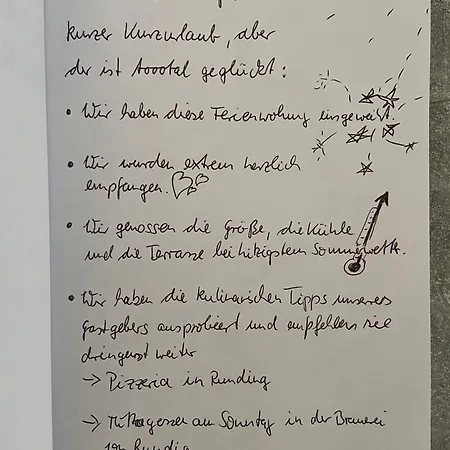 kurzer Kurzurlaub, aber
der ist toootal geglückt:
• Wir haben diese Ferienwohnung eingeweiht.
• Wir wurden extrem herzlich
empfangen.
• Wir genossen die Größe, die Kühle
und die Terrasse bei hitzigstem Sommerwetter.
• Wir haben die kulinarischen Tipps unseres
Gastgebers ausprobiert und empfehlen sie
dringenst weiter
→ Pizzeria in Runding
→ Mittagessen am Sonntag in der Brauerei